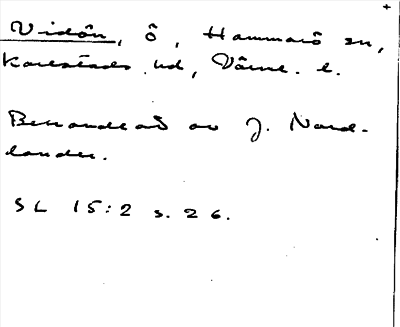 Vidön, ö, Hammarö sn,
Karlstads hd, Värml. l.
Behandlad av J. Nord-
lander.
SL 15:2 s. 26.